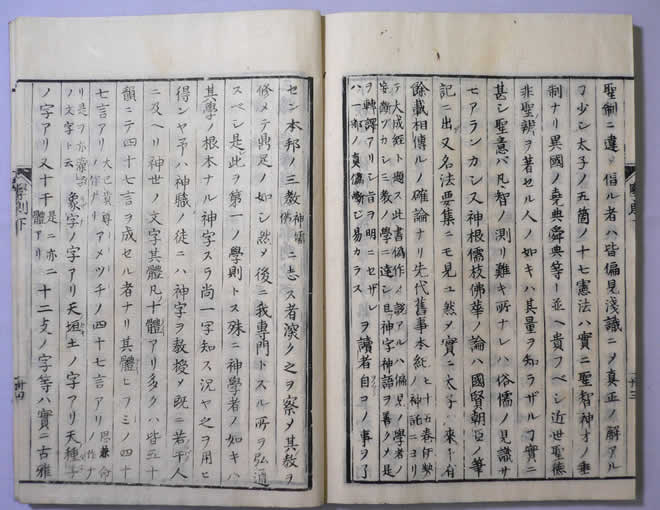 聖制ニ違ヒ倡ル者ハ皆偏見浅識ニメ真正ノ解アル
少シ太子ノ五箇ノ十七憲法ハ實ニ聖智神才ノ垂
制ナリ異國ノ堯典舜典等ト並ヘ貴フベシ近世聖徳
非聖辨ヲ著セル人ノ如キハ其量ヲ知ラザル丁實ニ
甚シ聖意バ凡智ノ測リ難キ所ナレハ俗儒ノ見識サ
モアランカシス神根儒枝佛華ノ論ハ國賢朝臣ノ筆
記ニ出又名法要集ニモ見ユ然メ實ニ太子ハ来千有
餘載相傳ルノ確論ナリ先代舊事本紀ノ神託ニヨリ
テ大成経ト題ス此書偽作ノ説アルハ偏見ノ學者ノ
三教ノ學ニ達シ且神字神語ヲ善クメ是
ヲ轉譯アリシ旨ヲ明ニセザレ
ヲ讀者自コノ事ヲ了
セン本邦ノ三教神儒佛ニ志ス者深ク之ヲ察メ其教ヲ
修メテ鼎足ノ如シ然メ後ニ我専門トスル所ヲ弘通
スベシ是此ヲ第一ノ學則トス殊ニ神學者ノ如キハ
其學ノ根本ナル神字スラ尚一字知ス況ヤ之ヲ用ヒ
得ンヤ予ハ神職ノ徒ニハ神字ヲ教授メ既ニ若干人
ニ及ヘリ神世ノ文字其體凡十體アリ多クハ皆五十
韻ニテ四十七言ヲ成セル者ナリ其體ヒフミノ四十
七言アリ大己貴尊ノ作アメツチノ四十七言アリ思兼命ノ作ナ
リ是ヲ亦ノ文字ト云象字ノ字アリ天垣土ノ字アリ天種子
ノ字アリ又十干十體アリ是ニ亦二十二支ノ字等ハ實ニ古雅
學則下
卅四
卅三